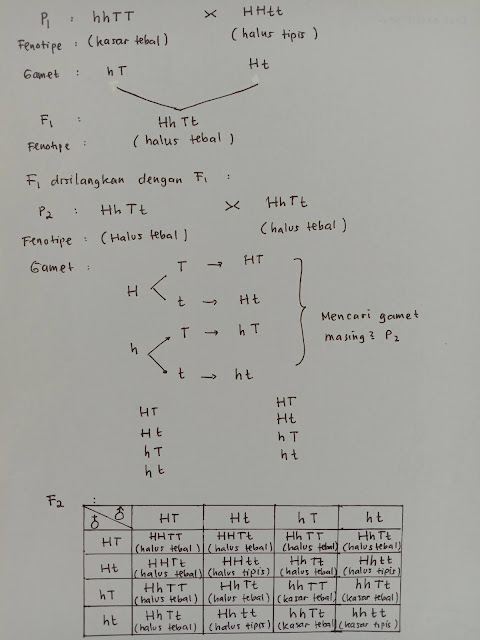 P₁ : hhTT × HHtt
Fenotipe : (kasar tebal) (halus tipis)
Gamet : hT Ht
F₁ : HhTt
Fenotipe : (halus tebal)
F₁ disilangkan dengan F₁ :
P₂ : HhTt × HhTt
Fenotipe : (Halus tebal) (halus tebal)
Gamet :
T → HT
H
t → Ht
T → hT
h
t → ht
Mencari gamet
masing² P₂
HT HT
Ht Ht
hT hT
ht ht
F₂ :
♀ ♂ HT Ht hT ht
HT HHTT HHTt HhTT HhTt
(halus tebal) (halus tebal) (halus tebal) (halus tebal)
Ht HHTt HHtt HhTt Hhtt
(halus tebal) (halus tipis) (halus tebal) (halus tipis)
hT HhTT HhTt hhTT hhTt
(halus tebal) (halus tebal) (kasar tebal) (kasar tebal)
ht HhTt Hhtt hhTt hhtt
(halus tebal) (halus tipis) (kasar tebal) (kasar tipis)